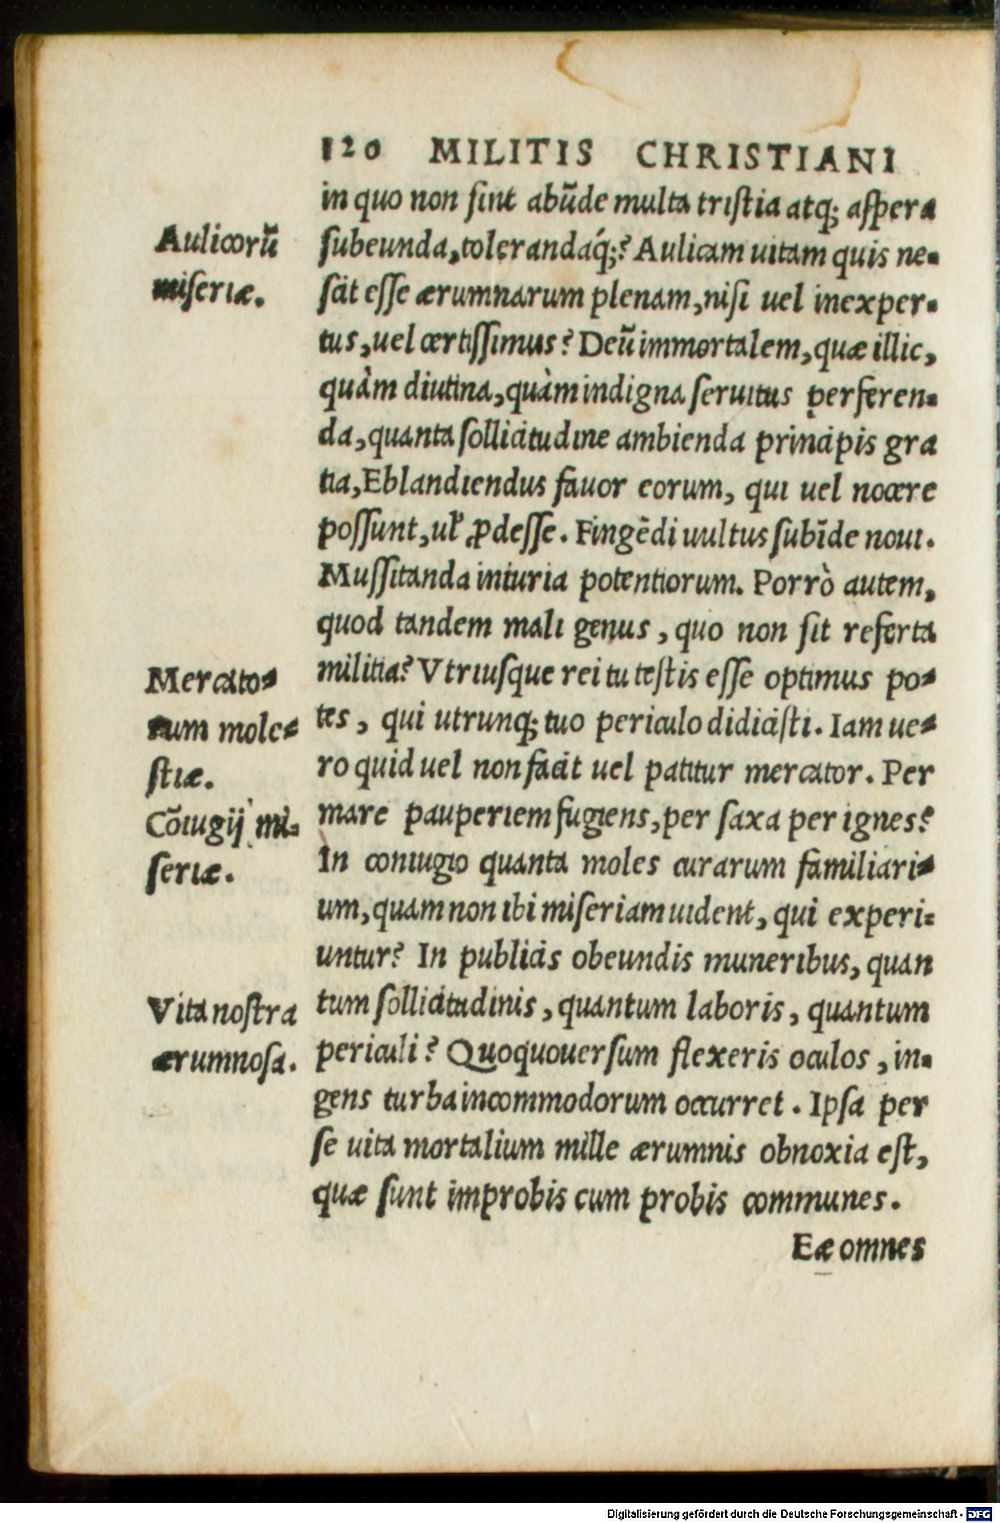 120 MILITIS CHRISTIANI
in quo non ſint abũde multa triſtia atq; aſpera
ſubeunda, tolerandaq́;? Aulicam uitam quis ne-
ſcit eſſe ærumnarum plenam, niſi uel inexper-
tus, uel certiſſimus? Deũ immortalem, quæ illic,
quàm diutina, quàm indigna ſeruitus perferen-
da, quanta ſollicitudine ambienda principis gra
tia, Eblandiendus fauor eorum, qui uel nocere
poſſunt, ul' ꝓdeſſe. Fingẽdi uultus ſubĩde noui.
Muſſitanda iniuria potentiorum. Porrò autem,
quod tandem mali genus, quo non ſit referta
militia? Vtriuſque rei tu teſtis eſſe optimus po-
tes, qui utrunq; tuo periculo didiciſti. Iam ue-
ro quid uel non facit uel patitur mercator. Per
mare pauperiem fugiens, per ſaxa per ignes?
In coniugio quanta moles curarum familiari-
um, quam non ibi miſeriam uident, qui experi-
untur? In publicis obeundis muneribus, quan
tum ſollicitudinis, quantum laboris, quantum
periculi? Quoquouerſum flexeris oculos, in-
gens turba incommodorum occurret. Ipſa per
ſe uita mortalium mille ærumnis obnoxia eſt,
quæ ſunt improbis cum probis communes.
Eæ omnes
Aulicorũ
miſeriæ.
Mercato-
rum mole-
ſtiæ.
Cõiugij mi-
ſeriæ.
Vita noſtra
ærumnoſa.
Digitalisierung gefördert durch die Deutsche Forschungsgemeinschaft - DFG